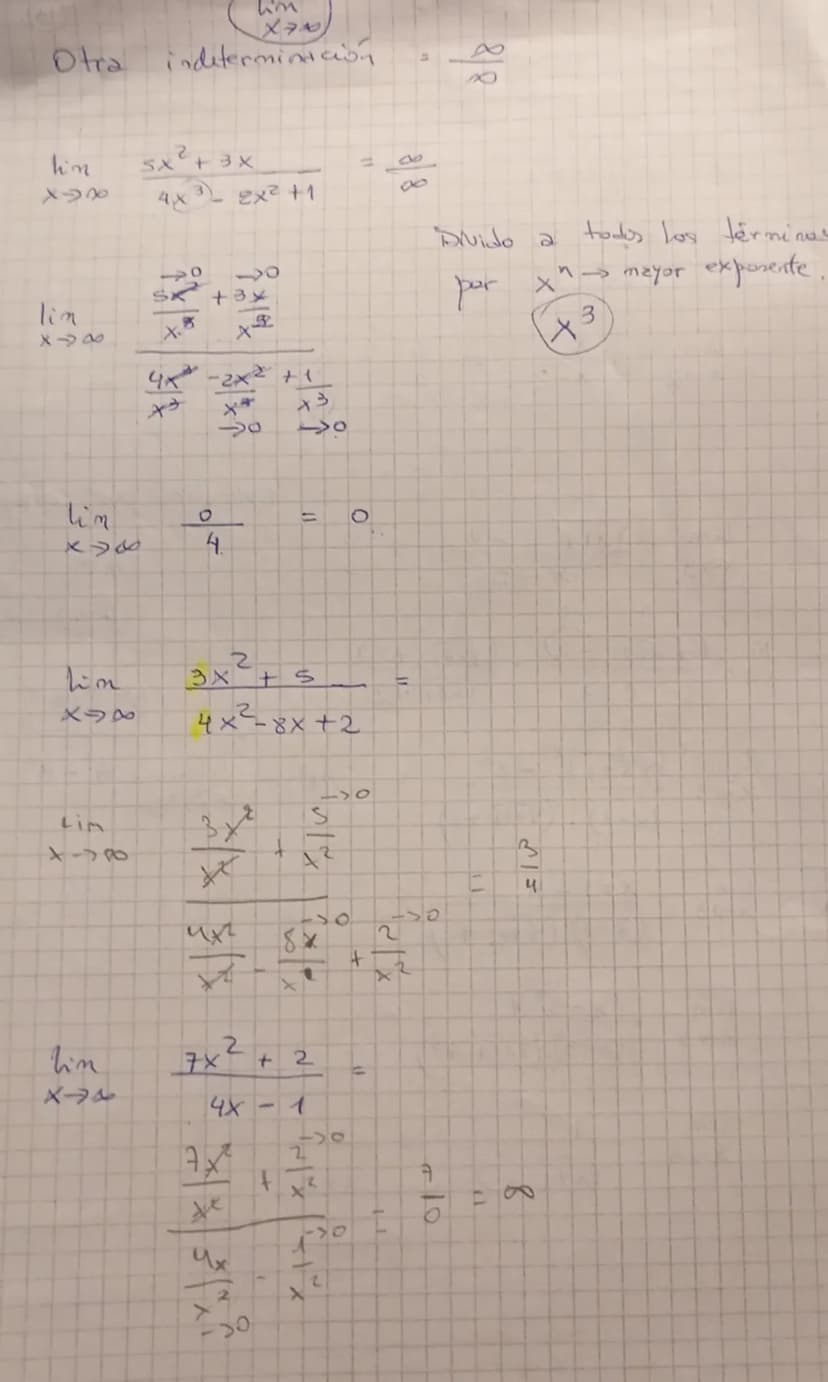 lim
x→∞
Otra indeterminación = ∞/∞
lim x→∞ (5x² + 3x)/(4x³ - 2x² + 1) = ∞/∞
Divido a todos los términos
por xⁿ → mayor exponente.
x³
→0 →0
lim x→∞ (5x²/x³ + 3x/x³)/(4x³/x³ - 2x²/x³ + 1/x³)
→0 →0
lim x→∞ 0/4 = 0
lim x→∞ (3x² + 5)/(4x² - 8x + 2) =
lim x→∞ (3x²/x² + 5/x² →0)/(4x²/x² - 8x/x² →0 + 2/x² →0) = 3/4
lim x→∞ (7x² + 2)/(4x - 1) =
(7x²/x² + 2/x² →0)/(4x/x² →0 - 1/x² →0) = 7/0 = ∞